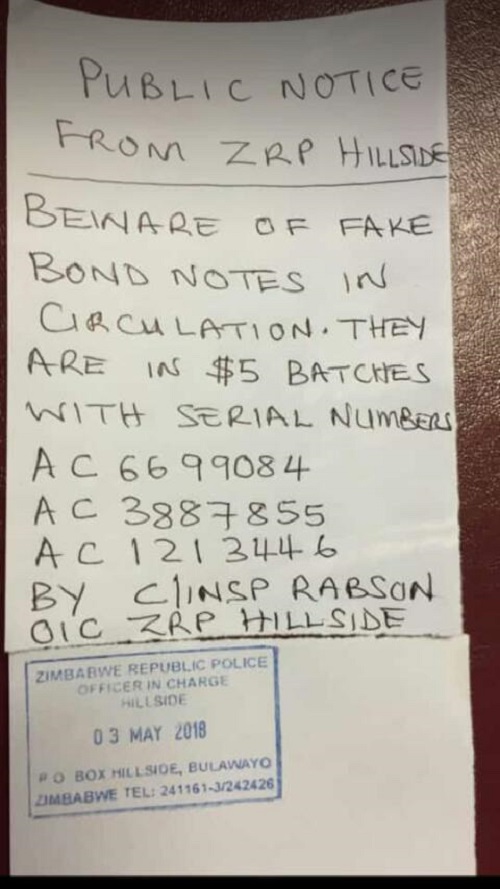 PUBLIC NOTICE
FROM ZRP HILLSIDE
BEWARE OF FAKE
BOND NOTES IN
CIRCULATION. THEY
ARE IN $5 BATCHES
WITH SERIAL NUMBERS
AC 6699084
AC 3887855
AC 1213446
BY C/INSP RABSON
OIC ZRP HILLSIDE
ZIMBABWE REPUBLIC POLICE
OFFICER IN CHARGE
HILLSIDE
03 MAY 2018
P O BOX HILLSIDE, BULAWAYO
ZIMBABWE TEL: 241161-3/242426